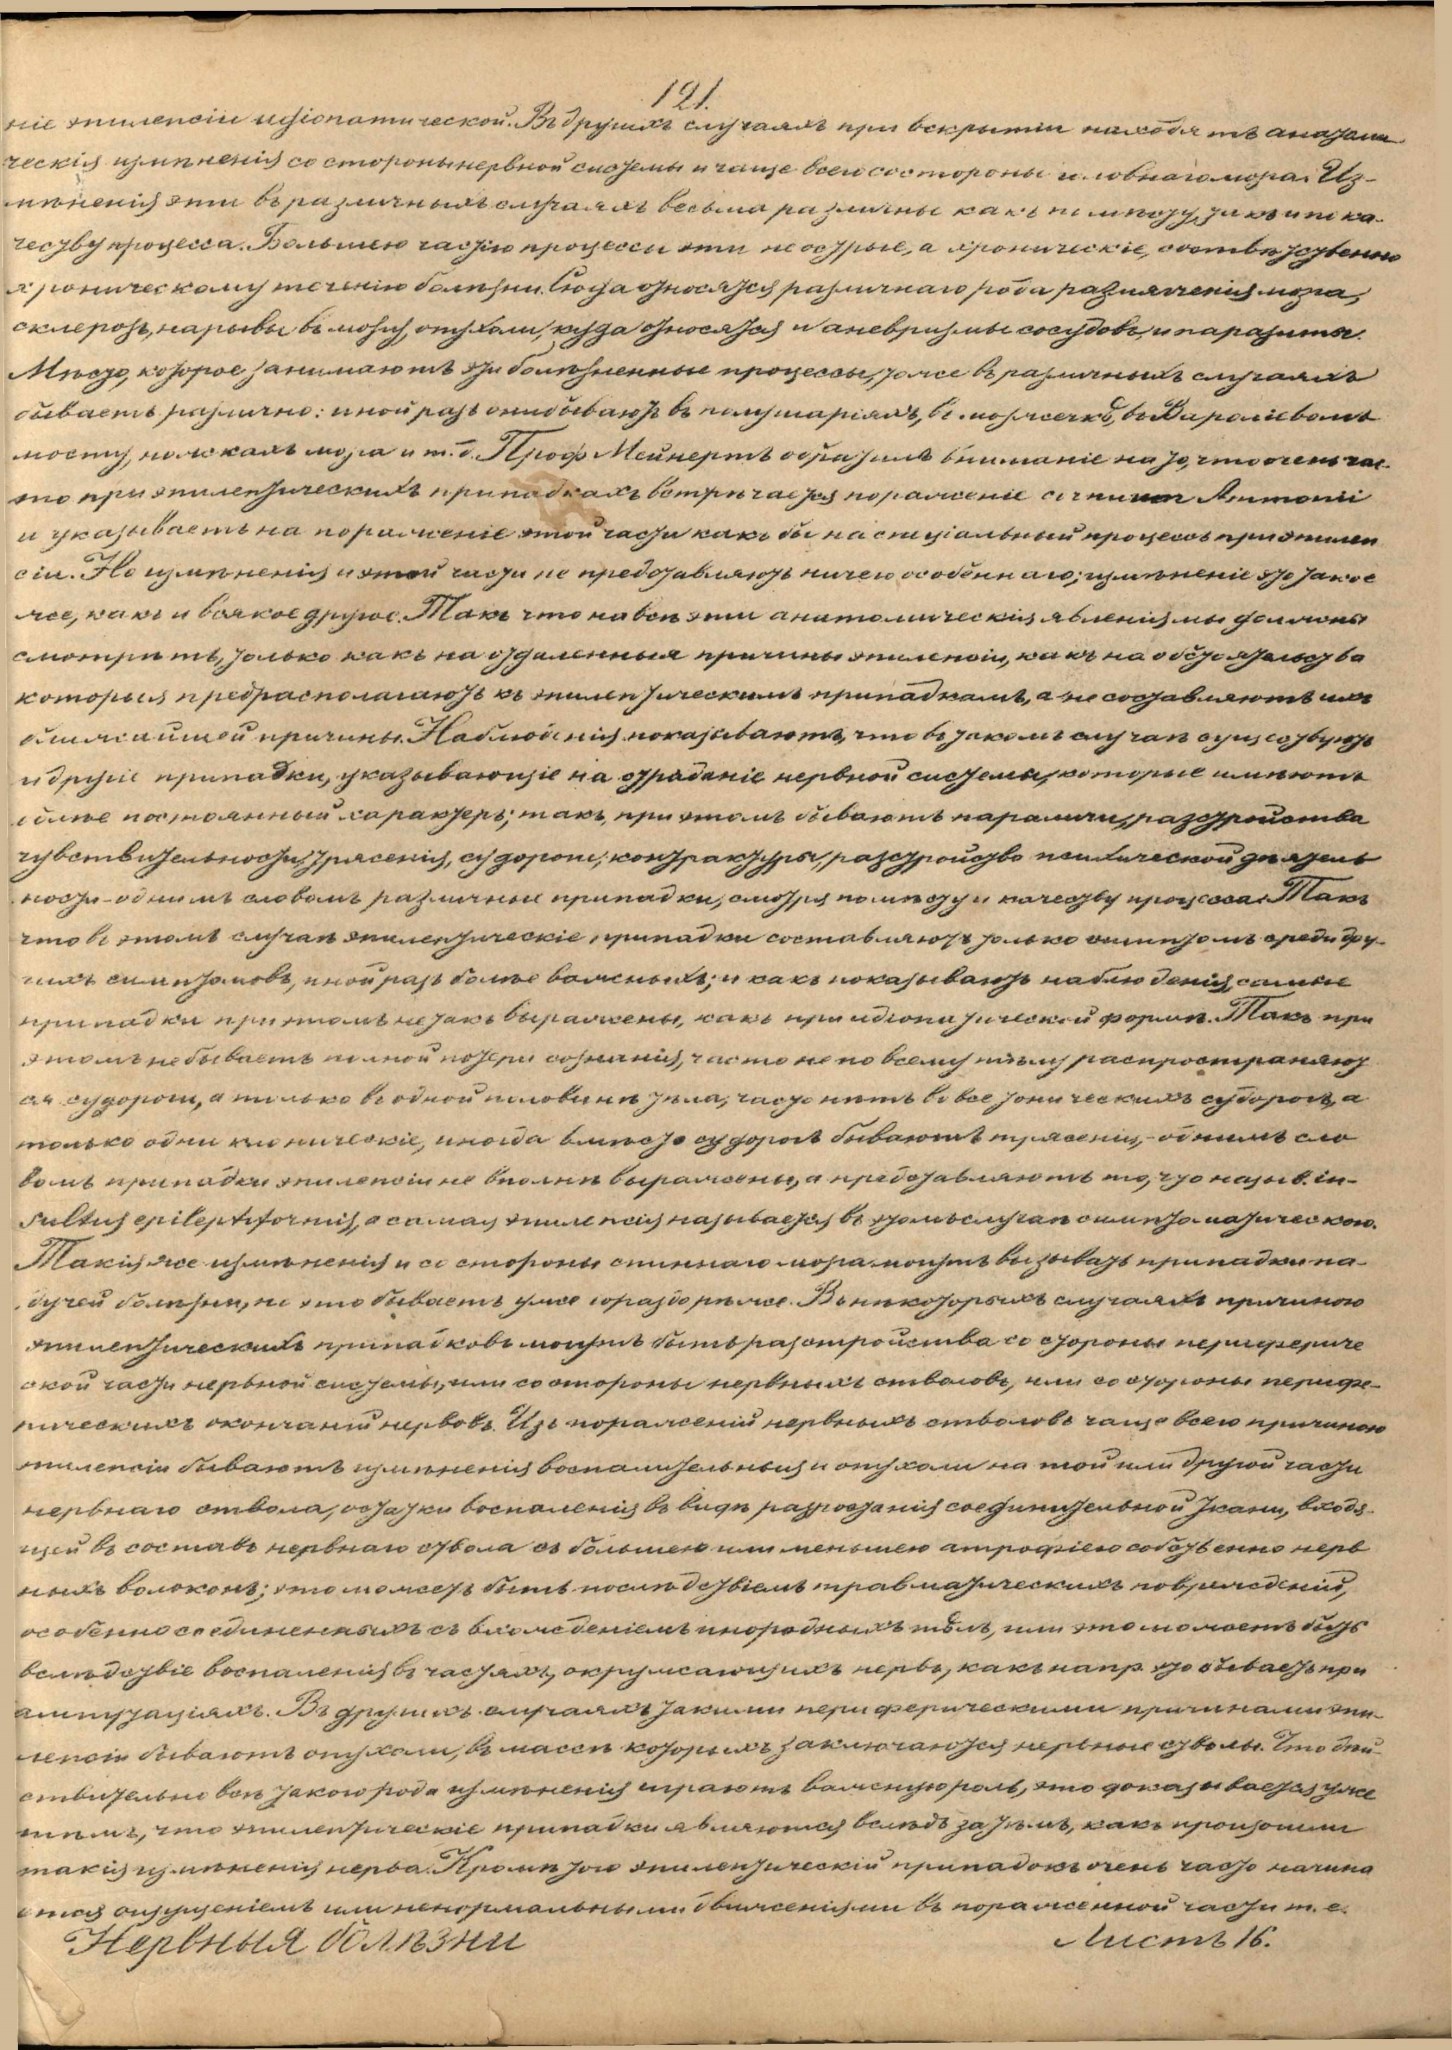 121.
ніе эпилепсіи идіопатической. Въ другихъ случаяхъ при вскрытіи находятъ анатоми-
ческія измѣненія со стороны нервной системы и чаще всего со стороны головнаго мозга. Из-
мѣненія эти въ различныхъ случаяхъ весьма различны какъ по мѣсту, такъ и по ка-
честву процесса. Большею частію процессы эти не острые, а хроническіе, соотвѣтственно
хроническому теченію болѣзни. Сюда относятся различнаго рода размягченія мозга,
склерозъ, нарывы въ мозгу, опухоли, куда относятся и аневризмы сосудовъ, и паразиты.
Мѣсто, которое занимаютъ эти болѣзненные процессы, тоже въ различныхъ случаяхъ
бываетъ различно: иной разъ они бываютъ въ полушаріяхъ, въ мозжечкѣ, въ Вароліевомъ
мосту, ножкахъ мозга и т.д. Проф. Мейнертъ обратилъ вниманіе на то, что очень час-
то при эпилептическихъ припадкахъ встрѣчается пораженіе cornu Ammonii
и указываетъ на пораженіе этой части какъ бы на спеціальный процессъ при эпилеп
сіи. Но измѣненія и этой части не представляютъ ничего особеннаго; измѣненіе это такое
же, какъ и всякое другое. Такъ что на всѣ эти анатомическія явленія мы должны
смотрить, только какъ на отдаленныя причины эпилепсіи, какъ на обстоятельства
которыя предрасполагаютъ къ эпилептическимъ припадкамъ, а не составляютъ ихъ
ближайшей причины. Наблюденія показываютъ, что въ такомъ случаѣ существуютъ
и другіе припадки, указывающіе на страданіе нервной системы, которые имѣютъ
болѣе постоянный характеръ; такъ, при этомъ бываютъ параличи, разстройства
чувствительности, трясенія, судороги, контрактуры, разстройство психической дѣятель
ности - однимъ словомъ различные припадки, смотря по мѣсту и качеству процесса. Такъ
что въ этомъ случаѣ эпилептическіе припадки составляютъ только симптомъ среди дру-
гихъ симптомовъ, иной разъ болѣе важныхъ; и какъ показываютъ наблюденія, самые
припадки при этомъ не такъ выражены, какъ при идіопатической формѣ. Такъ при
этомъ не бываетъ полной потери сознанія, часто не по всему тѣлу распространяют
ся судороги, а только въ одной половинѣ тѣла, часто нѣтъ вовсе тоническихъ судорогъ, а
только одни клоническіе, иногда вмѣсто судорогъ бываютъ трясенія, - однимъ сло
вомъ припадки эпилепсіи не вполнѣ выражены, а представляютъ то, что назыв. in-
sultus epileptiformis, а самая эпилепсія называется въ этомъ случаѣ симптоматическою.
Такія же измѣненія и со стороны спиннаго мозга могутъ вызывать припадки па-
дучей болѣзни, но это бываетъ уже гораздо рѣже. Въ нѣкоторыхъ случаяхъ причиною
эпилептическихъ припадковъ могутъ быть разстройства со стороны перифериче
ской части нервной системы, или со стороны нервныхъ стволовъ, или со стороны перифе-
рическихъ окончаній нервовъ. Изъ пораженій нервныхъ стволовъ чаще всего причиною
эпилепсіи бываютъ измѣненія воспалительныя и опухоли на той или другой части
нервнаго ствола, остатки воспаленія въ видѣ разростанія соединительной ткани, входя-
щей въ составъ нервнаго ствола съ большею или меньшею атрофіею собственно нерв
ныхъ волоконъ; это можетъ быть послѣдствіемъ травматическихъ поврежденій,
особенно соединенныхъ съ вхожденіемъ инородныхъ тѣлъ, или это можетъ быть
вслѣдствіе воспаленія въ частяхъ, окружающихъ нервъ, какъ напр. это бываетъ при
ампутаціяхъ. Въ другихъ случаяхъ такими периферическими причинами эпи-
лепсіи бываютъ опухоли, въ массѣ которыхъ заключаются нервные стволы. Что дѣй-
ствительно всѣ такого рода измѣненія играютъ важную роль, это доказывается уже
тѣмъ, что эпилептическіе припадки являются вслѣдъ за тѣмъ, какъ произошли
такія измѣненія нерва. Кромѣ того эпилептическій припадокъ очень часто начина
ется ощущеніемъ или ненормальными движеніями въ пораженной части т. е.
Нервныя болѣзни
Листъ 16.